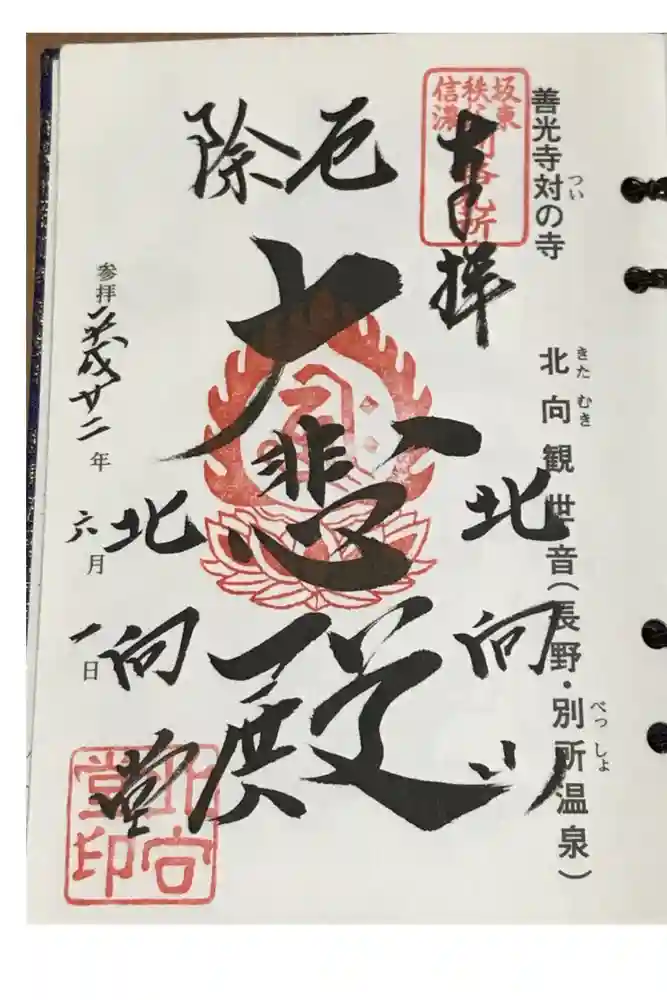 善光寺対の寺
つい
北向観世音(長野・別所温泉)
きた むき
べっ しょ
坂東
秩父
信濃
奉拝
厄除
北向山
大悲殿
北向堂
参拝 平成廿二年 六月 一日
北向
堂印